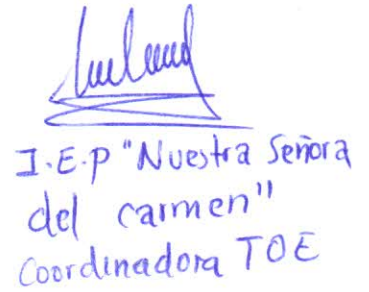 I.E.P "Nuestra Señora
del carmen"
Coordinadora TOE